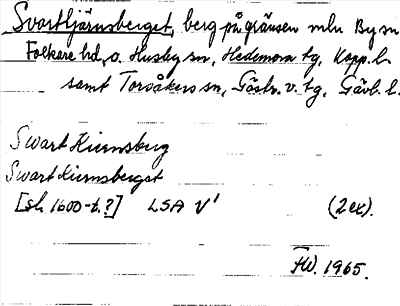 Svarttjärnsberget, berg på gränsen mln By sn
Folkare hd, o. Husby sn, Hedemora tg, Kopp. l.
samt Torsåkers sn, Gästr. v. tg, Gävl. l.
Swart Kiernsberg
Swart Kiernsberget
[sl. 1600-t.?] LSA V¹ (2 ex).
HW. 1965.